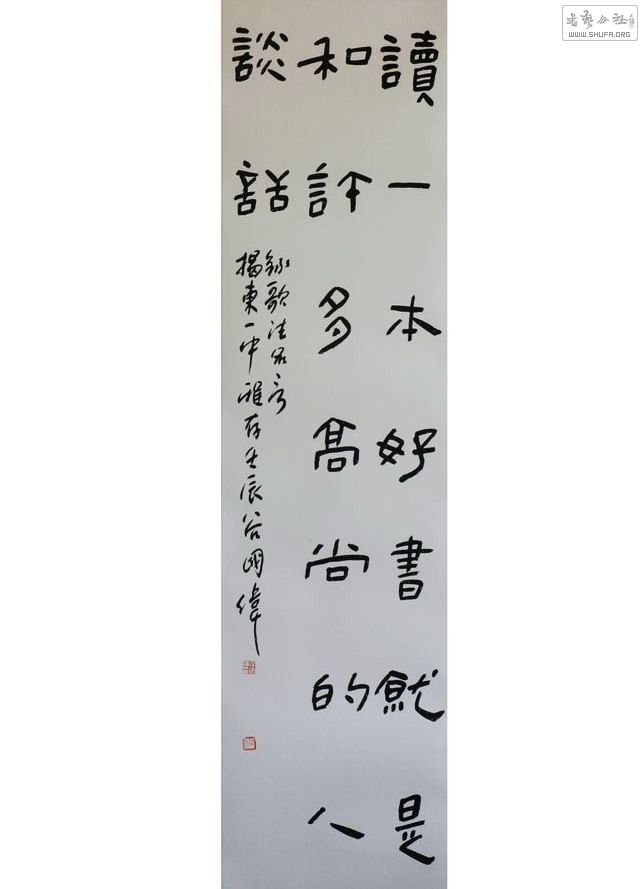 讀一本好書就是
和許多高尚的人
談話
錄歌法名言
揭東一中雅存壬辰谷國偉
書藝公社
WWW.SHUFA.ORG